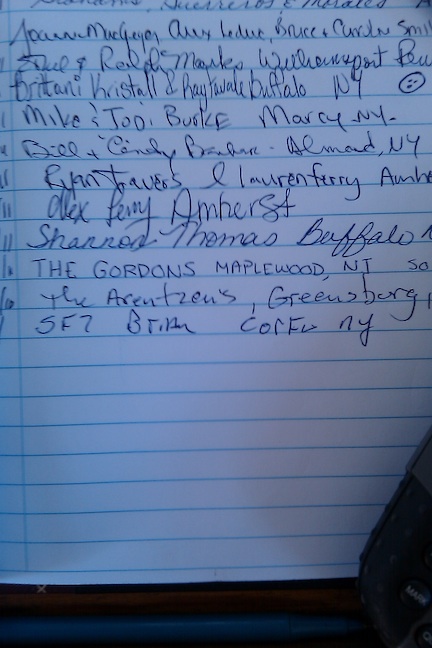 Guerreros & Morales
Joann MacGregor, Alex Leduc, Bruce & Carolyn Smi
& Ralph Williamsport Pen
Brittani Kristall & Ray Buffalo NY
Mike & Todi Burke Marcy NY.
Bill & Candy - Almond, NY
Ryan Travers & lauren ferry Amhe
Alex ferry Amherst
Shannon Thomas Buffalo
THE GORDONS MAPLEWOOD, NJ SO
The Arentzen's, Greensborg,
SFZ Brian Corfu ny
MARK